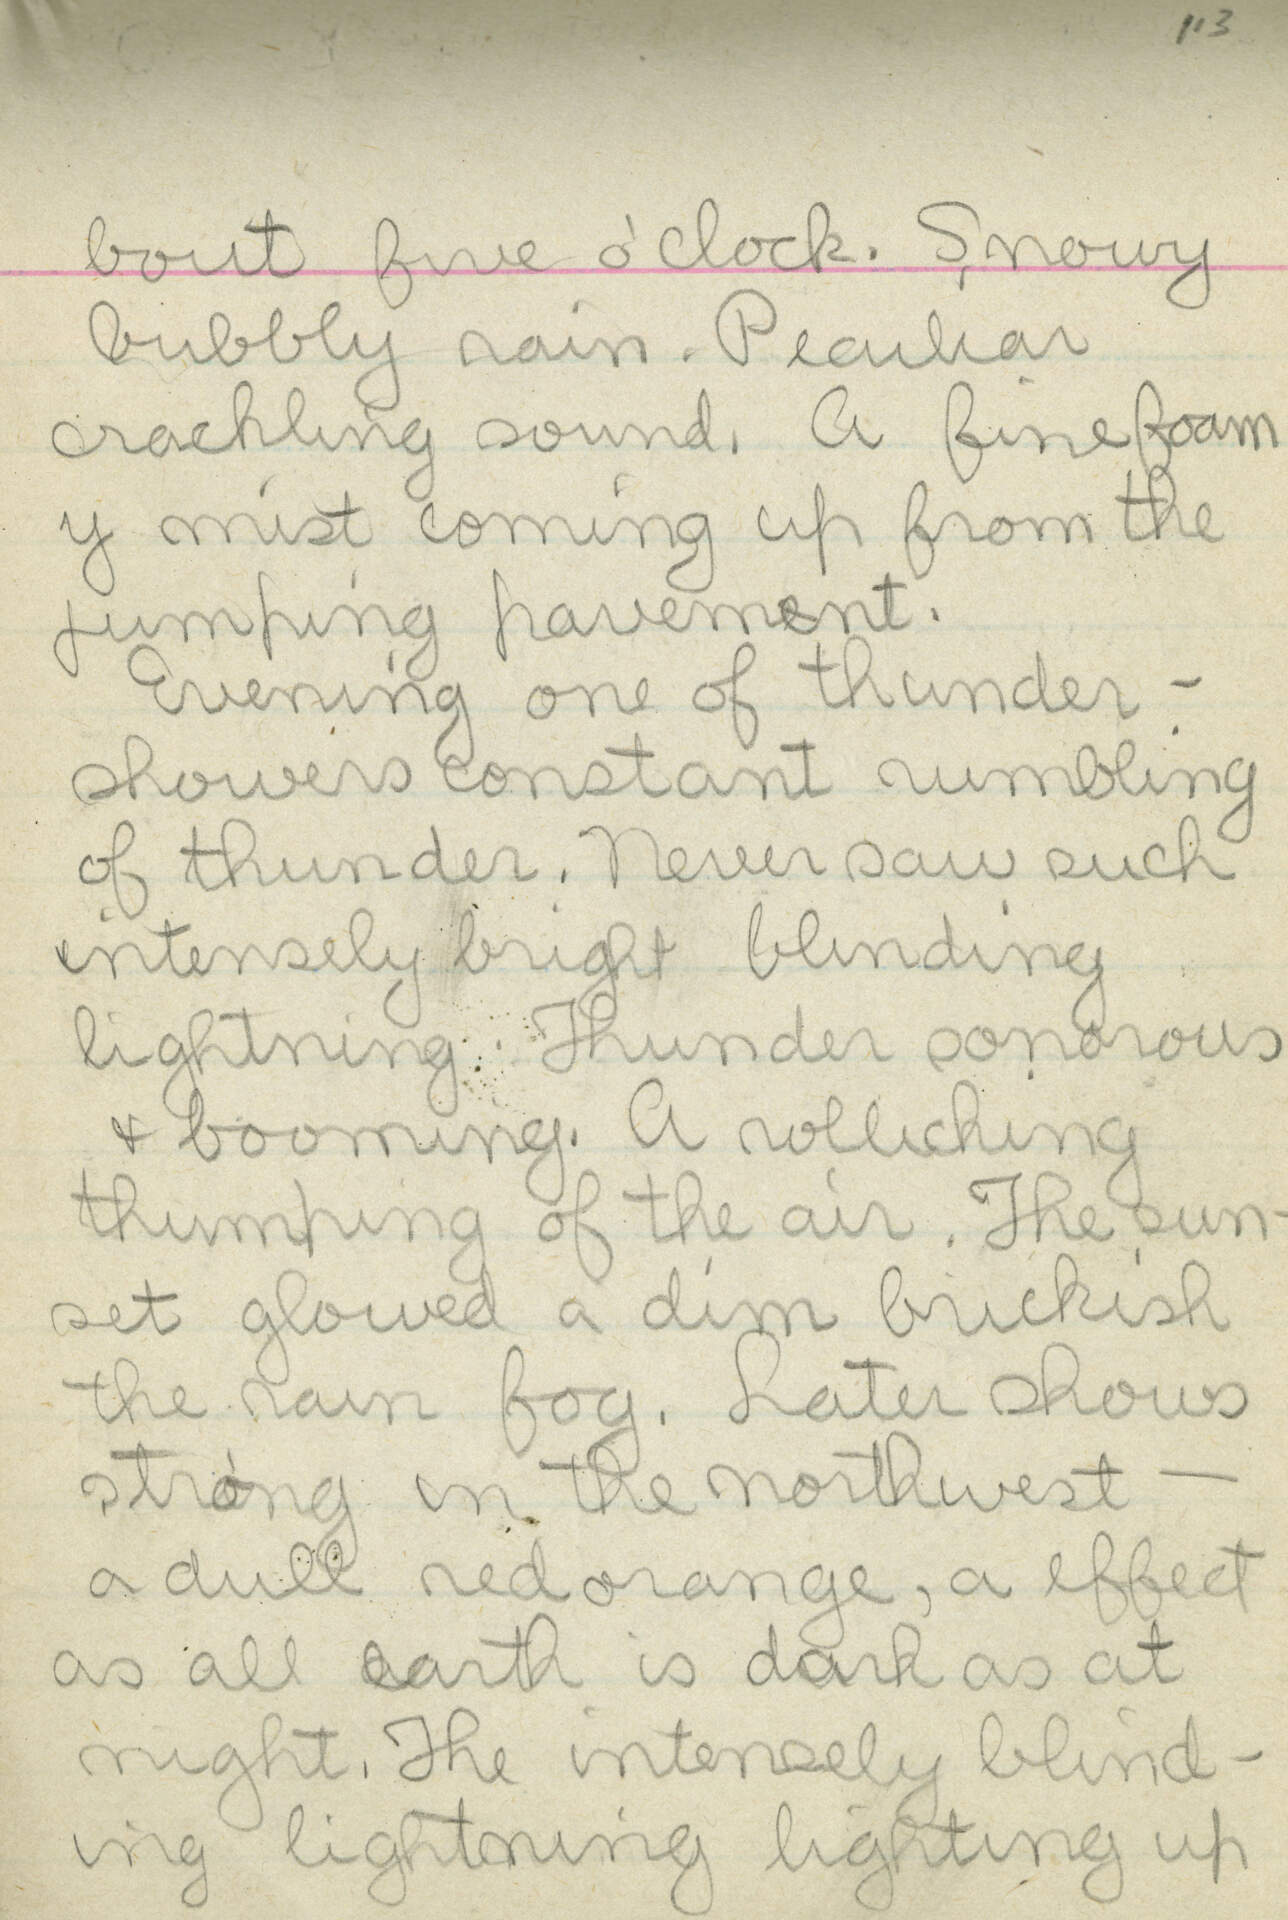 113
bout five o'clock. Snowy
bubbly rain. Peculiar
crackling sound. A fine foam
y mist coming up from the
jumping pavement.
Evening one of thunder-
showers constant rumbling
of thunder. Never saw such
intensely bright blinding
lightning. Thunder sonorous
& booming. A rollicking
thumping of the air. The sun-
set glowed a dim brickish
the rain fog. Later shows
strong in the northwest —
a dull red orange, a effect
as all earth is dark as at
night. The intensely blind-
ing lightning lighting up